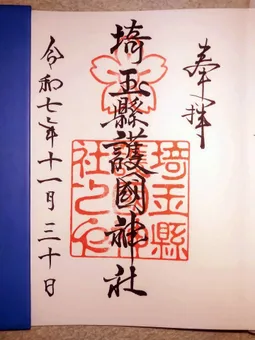 奉拝
埼玉縣護國神社
令和七年十一月三十日
埼玉縣
社之印